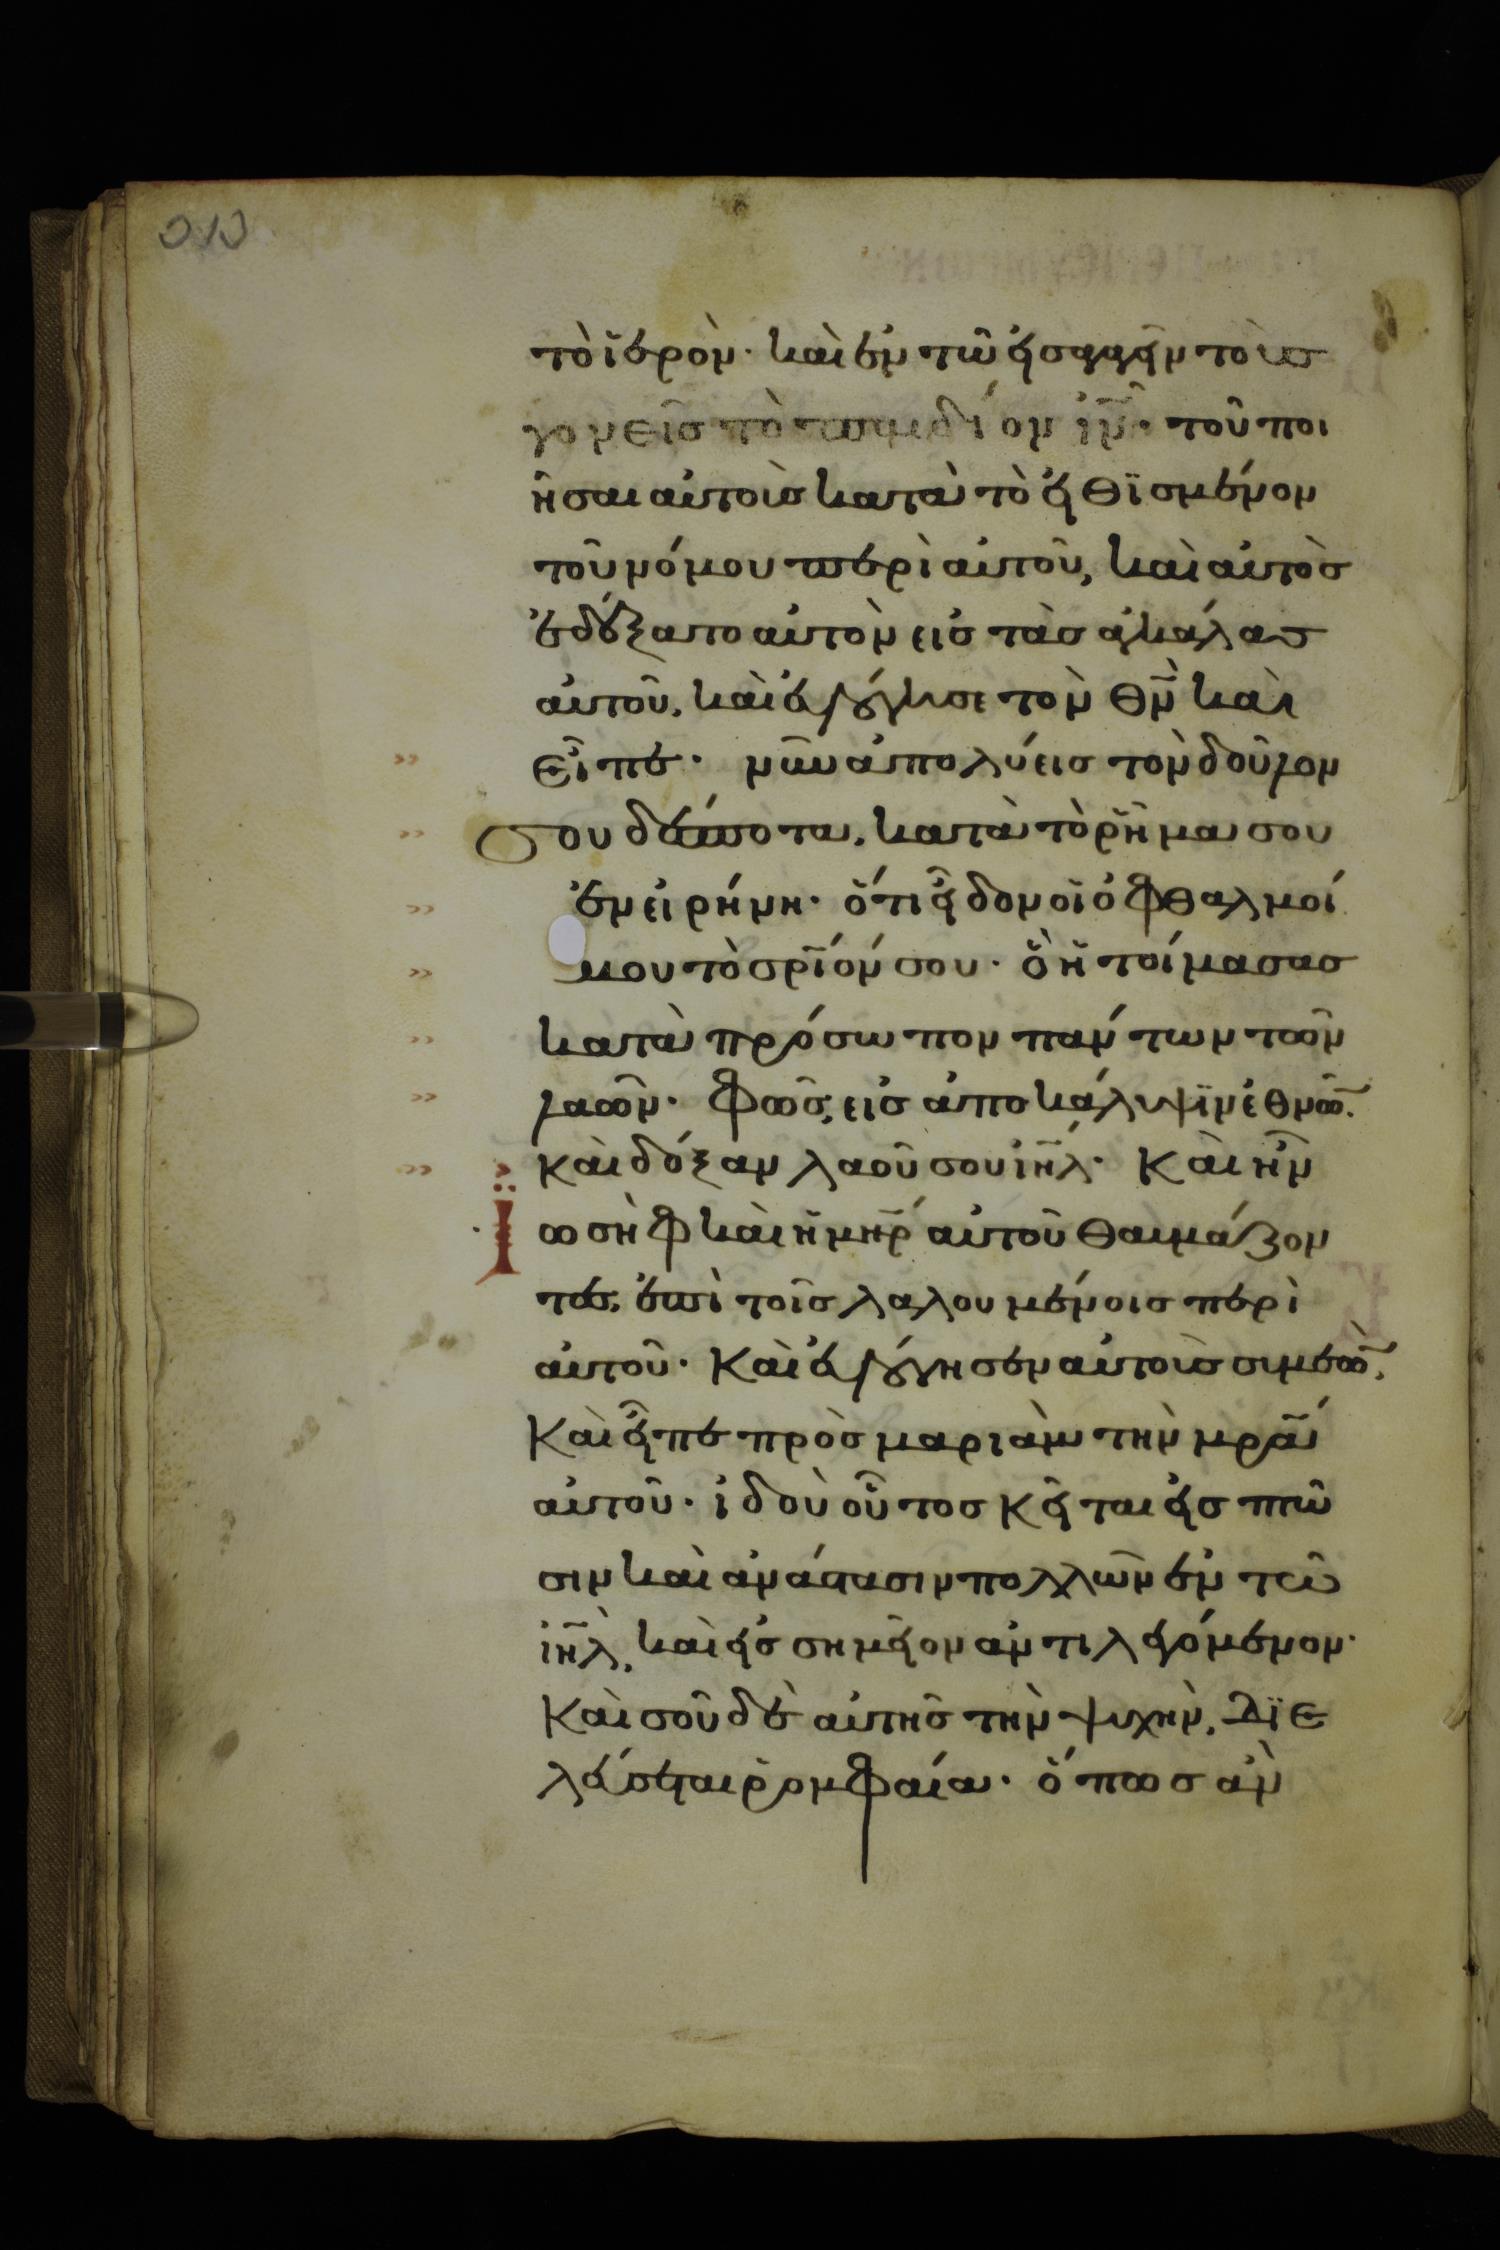 τὸ ἱερὸν· καὶ ἐν τῶ εἰσαγαγεῖν τοὺς
γονεῖς τὸ παιδίον ἰν̅· τοῦ ποι
ῆσαι αὐτοὺς κατὰ τὸ εἰθϊσμένον
τοῦ νόμου περὶ αὐτοῦ, καὶ αὐτὸς
ἐδέξατο αὐτὸν εἰς τὰς ἀγκάλας
αὐτοῦ, καὶ εὐλόγησε τὸν θν̅ καὶ
εἶπε· νῦν ἀπολύεις τὸν δοῦλον
σου δέσποτα, κατὰ τὸ ῥῆμα σου
ἐν εἰρήνη· ὅτι εἶδον οἱ ὀφθαλμοί
μου τὸ σρ̅ιόν σου· ὃ ἡτοίμασας
κατὰ πρόσωπον πάντων τῶν
λαῶν· φῶς εἰς ἀποκάλυψϊν ἐθνῶ̅.
καὶ δόξαν λαοῦ σου ιη̅λ· Καὶ ἦν
ἰωσὴφ καὶ ἡ μη̅ρ αὐτοῦ θαυμάζον
τες, ἐπὶ τοῖς λαλουμένοις περὶ
αὐτοῦ· Καὶ εὐλόγησεν αὐτοὺς συμεὼ̅,
Καὶ εἶπε πρὸς μαριὰμ τὴν μρ̅α
αὐτοῦ· ἰδοὺ οὗτος κεῖται εἰς πτῶ
σιν καὶ ἀνάστασιν πολλῶν ἐν τῶ
ιη̅λ, καὶ εἰς σημεῖον ἀντιλεγόμενον·
Καὶ σοῦ δὲ αὐτῆς τὴν ψυχὴν, δϊε
λεύσεται ῥομφαία· ὅπως ἂν